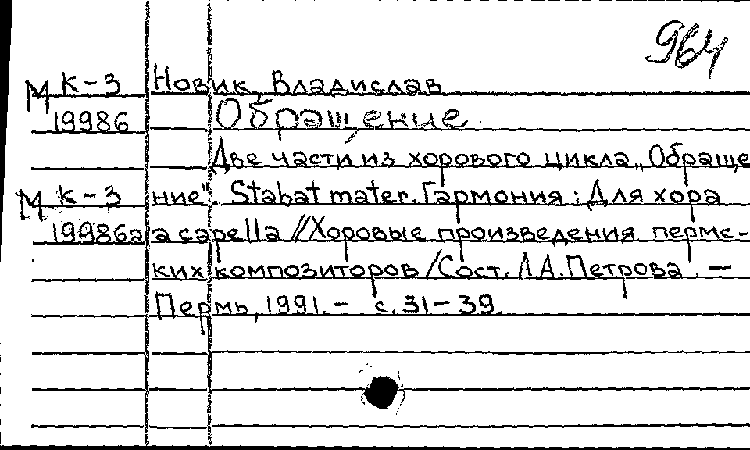 964
М К-3 Новик, Владислав
19986 Обращение
Две части из хорового цикла „Обраще
М К-3 ние". Stabat mater. Гармония : Для хора
19986а a capella // Хоровые произведения пермс-
ких композиторов / Сост. Л.А. Петрова. —
Пермь, 1991. – с. 31-39